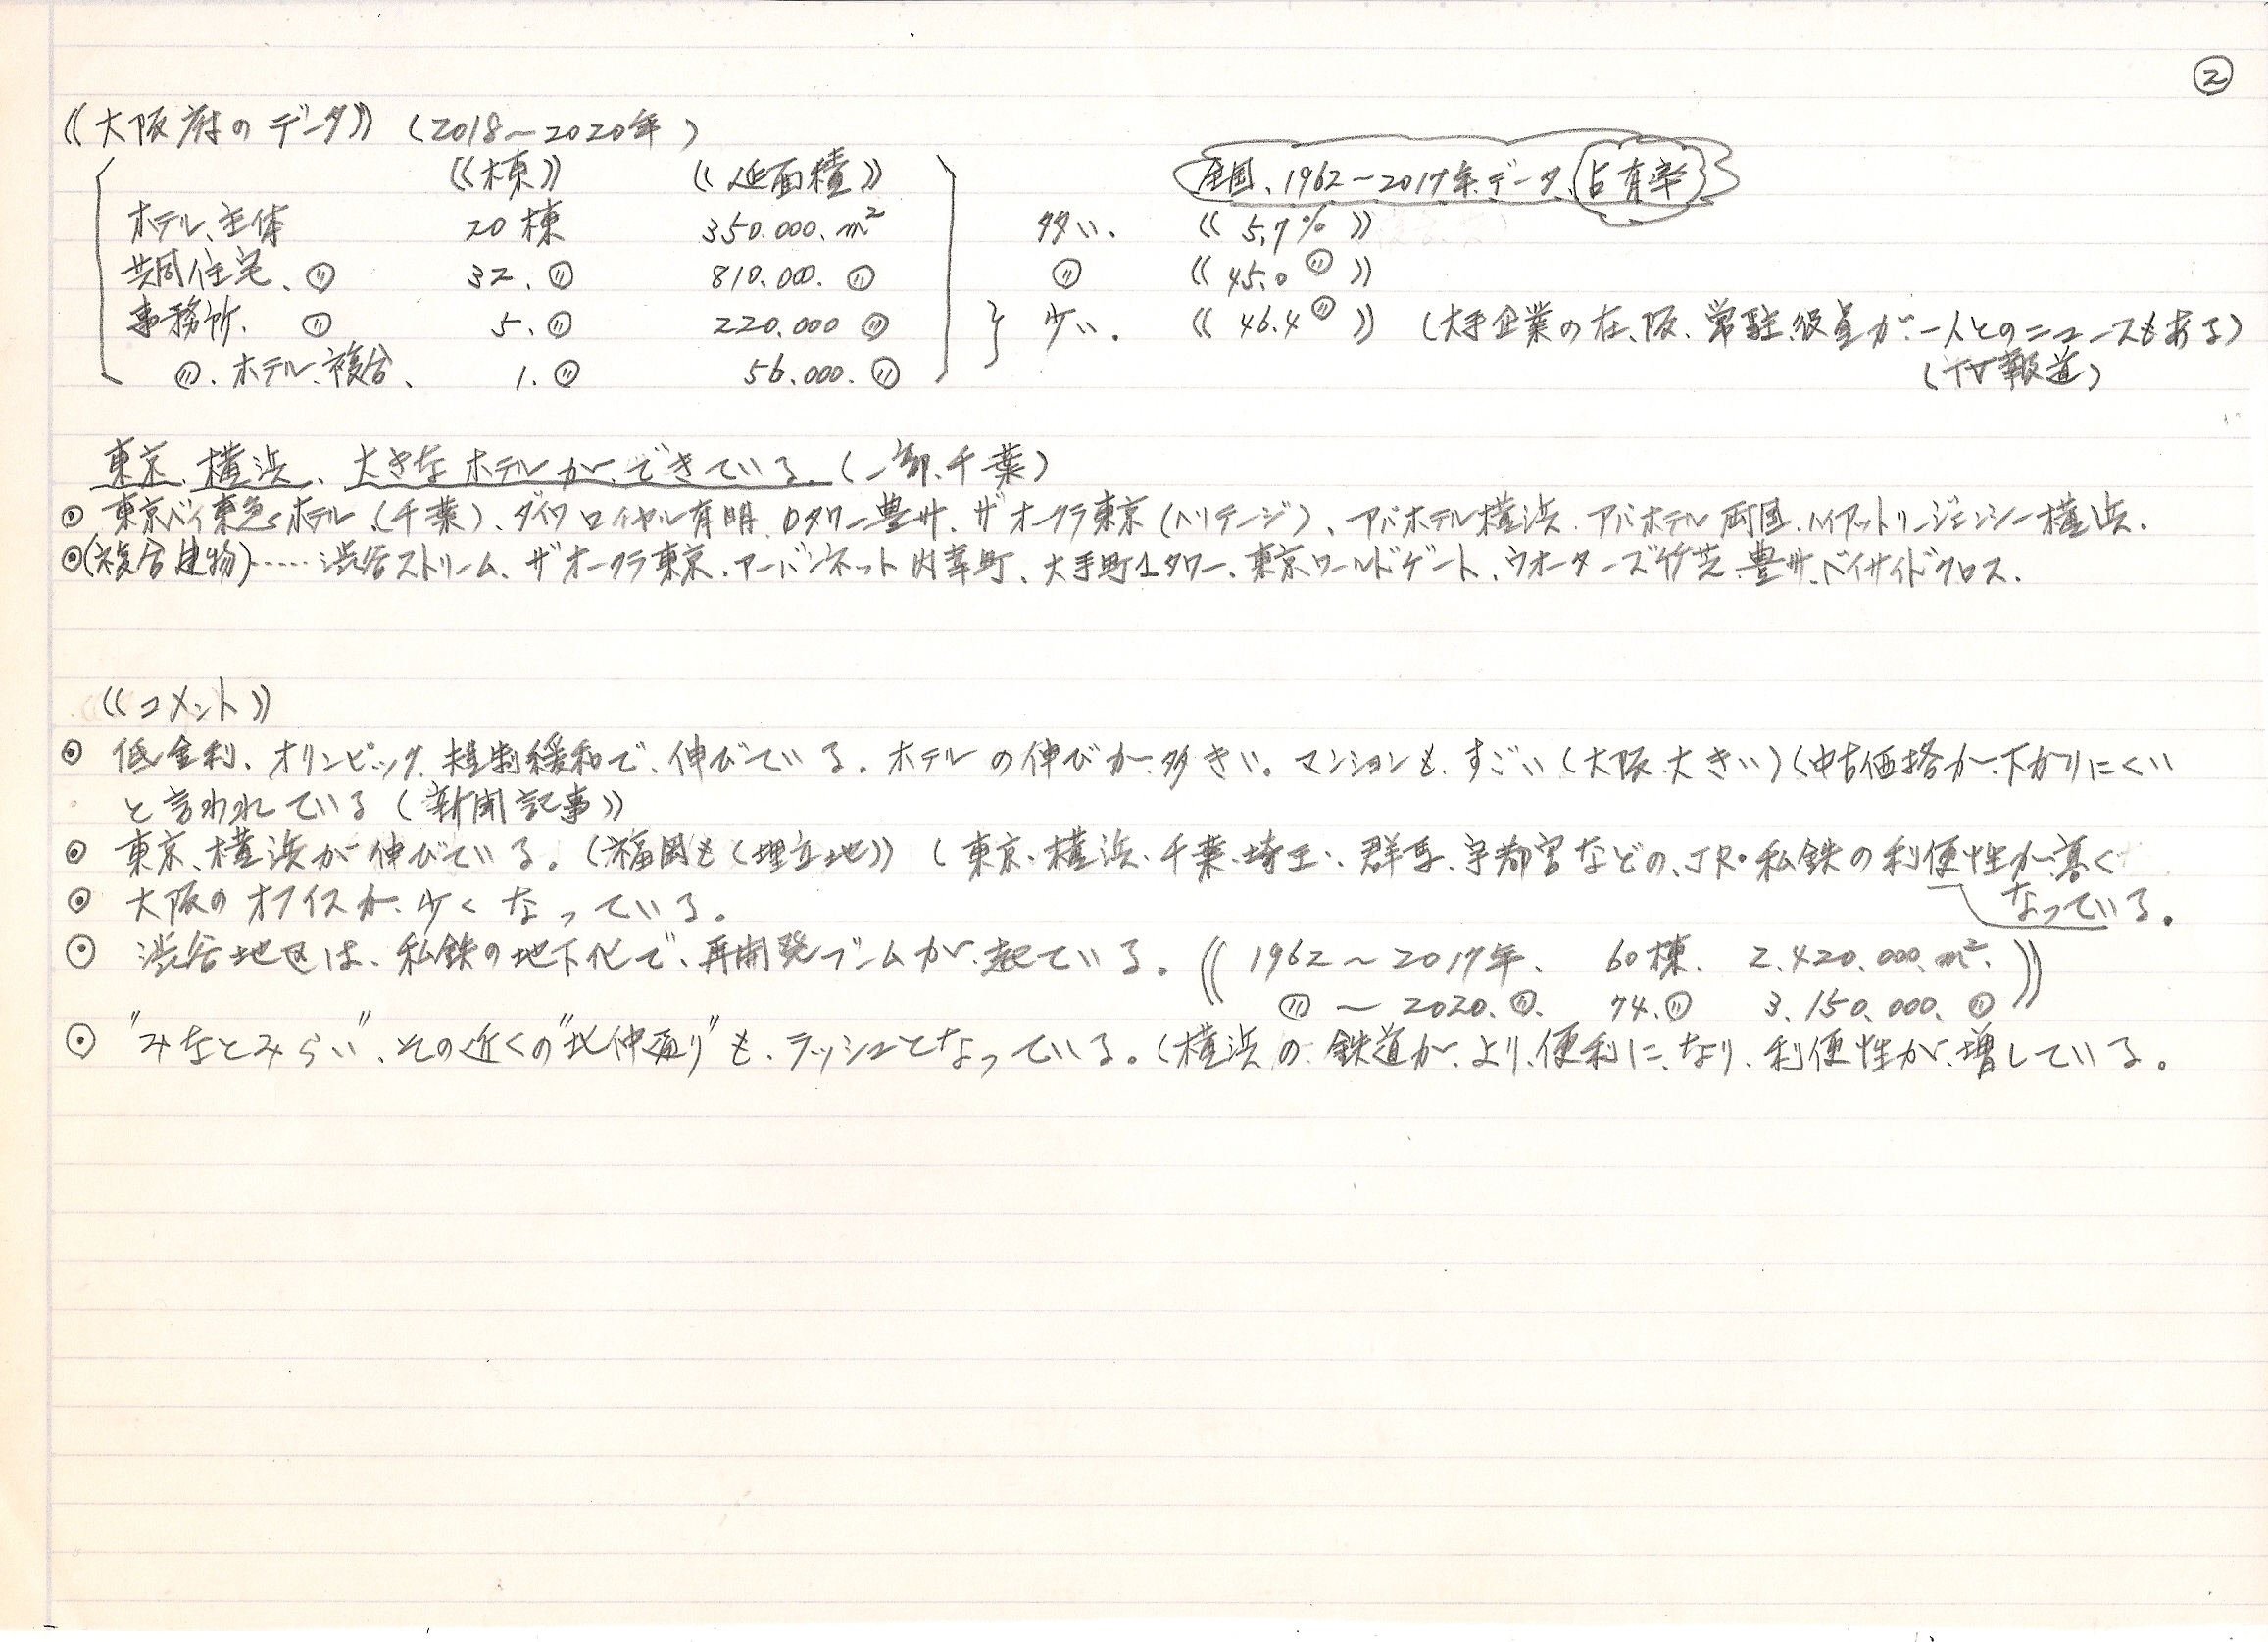 ②
《大阪府のデータ》(2018〜2020年)
《棟》 《延面積》 全国、1962〜2017年データ、占有率
ホテル、主体 20棟 350.000.m² 多い. 《5.7%》
共同住宅、〃 32.〃 810.000.〃 〃 《45.0〃》
事務所.〃 5.〃 220.000〃 少い. 《46.4〃》(大手企業の在、阪、常駐役員が、一人とのニュースもある)
〃.ホテル、複合、 1.〃 56.000.〃 (TV報道)
東京、横浜、大きなホテルが、できている。(一部、千葉)
◎ 東京ベイ東急ホテル(千葉)、ダイワロイヤル有明、Dタワー豊洲、ザオークラ東京(ヘリテージ)、アパホテル横浜.アパホテル両国.ハイアットリージェンシー横浜.
◎(複合建物)……渋谷ストリーム、ザオークラ東京、アーバンネット内幸町、大手町1タワー、東京ワールドゲート、ウオーターズ竹芝、豊洲、ベイサイドクロス.
《コメント》
◎ 低金利、オリンピック、規制緩和で、伸びている。ホテルの伸びが、多きい。マンションも、すごい(大阪、大きい)(中古価格が、下がりにくい
と言われている(新聞記事》
◎ 東京、横浜が伸びている。(福岡も(埋立地》(東京、横浜、千葉、埼玉、群馬、宇都宮などの、JR・私鉄の利便性が、高く
なっている。
◎ 大阪のオフィスが、少くなっている。
⊙ 渋谷地区は、私鉄の地下化で、再開発ブームが、起ている。《1962〜2017年、60棟.2.420.000.m².
〃〜2020.〃.74.〃 3.150.000.〃》
⊙ "みなとみらい"、その近くの"北仲通り"も、ラッシュとなっている。(横浜の、鉄道が、より、便利に、なり、利便性が、増している。